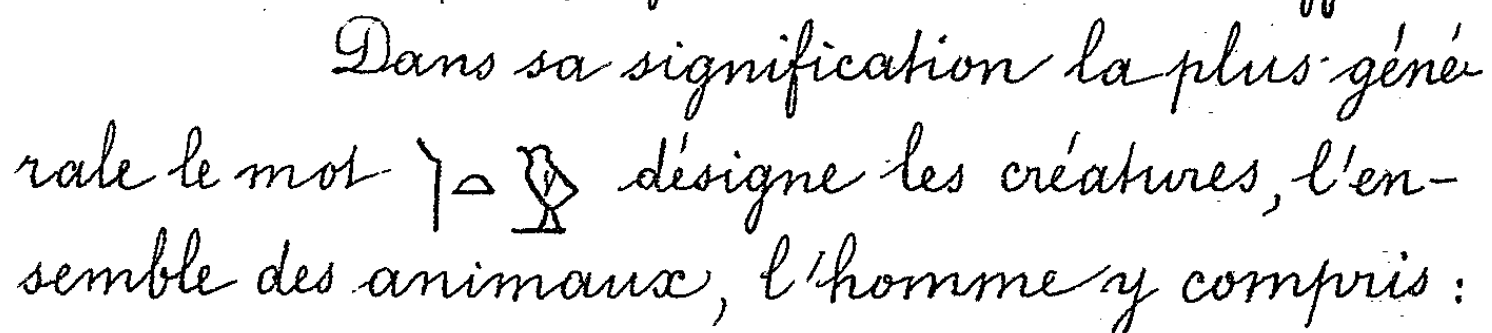 Dans sa signification la plus géné-
rale le mot 𓋿𓏏𓅱 désigne les créatures, l'en-
semble des animaux, l'homme y compris :